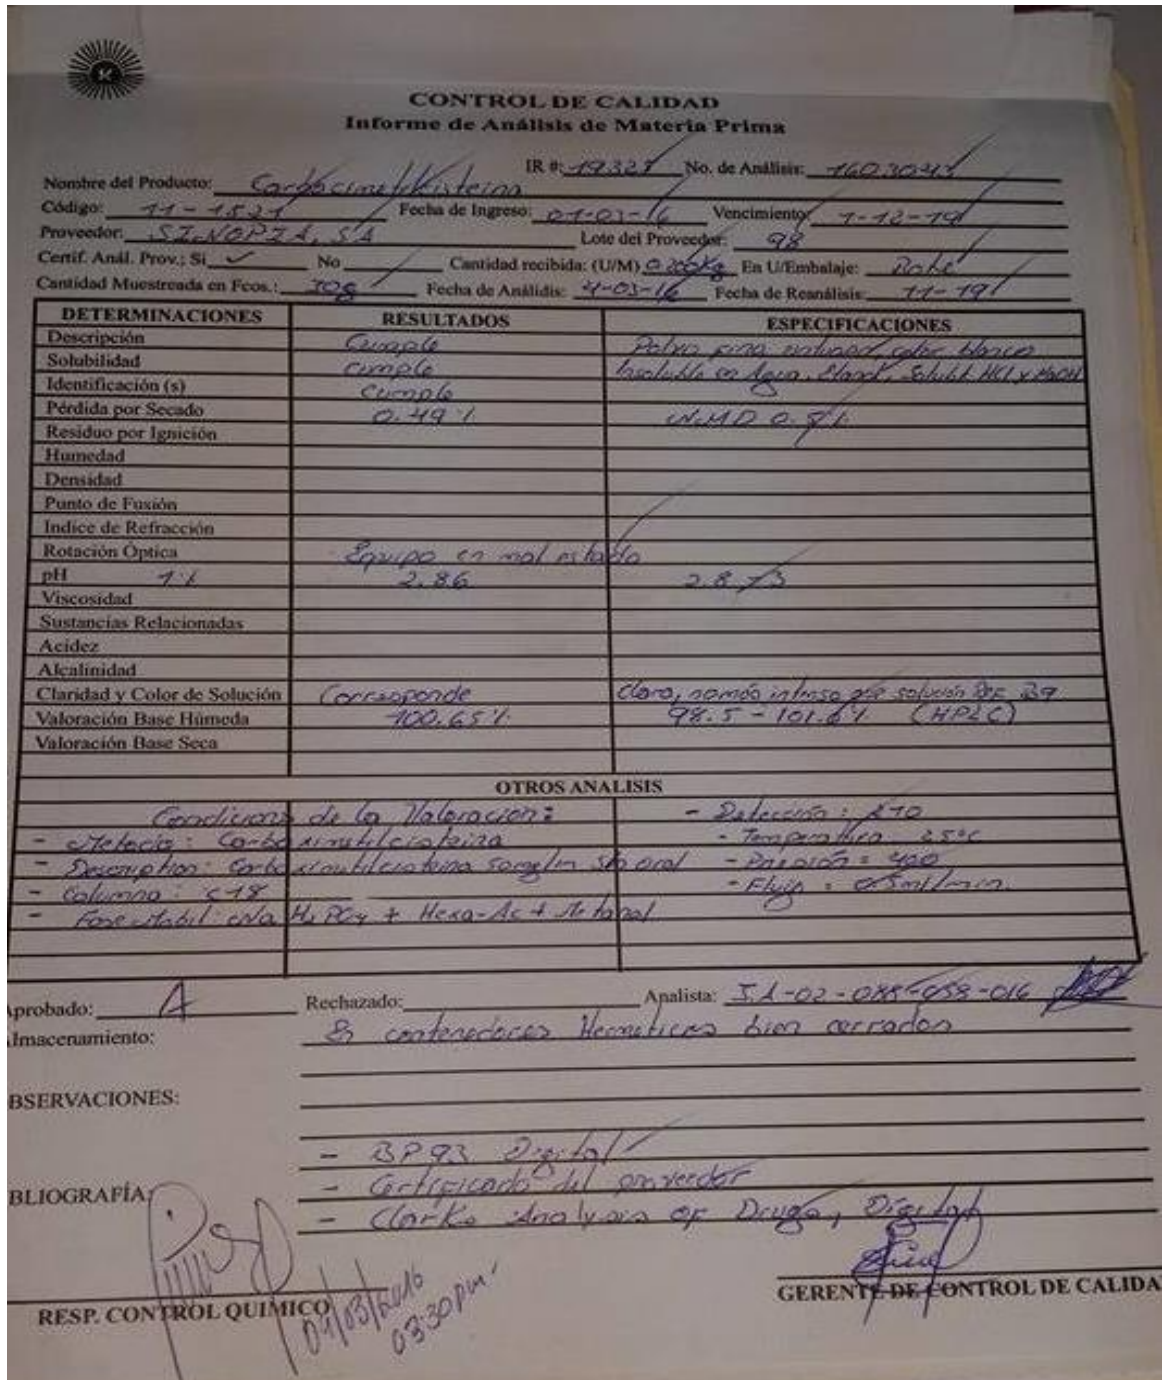 CONTROL DE CALIDAD
Informe de Análisis de Materia Prima
IR #: 19327 No. de Análisis:
Nombre del Producto:
Código: 11-1521 Fecha de Ingreso: 01-03-16 Vencimiento: 1-12-19
Proveedor: SINOPZA, SA Lote del Proveedor: 98
Certif. Anál. Prov.: Si ✓ No Cantidad recibida: (U/M) 0.200Kg En U/Embalaje:
Cantidad Muestreada en Fcos.: 10g Fecha de Análidis: 4-03-16 Fecha de Reanálisis: 11-19
DETERMINACIONES RESULTADOS ESPECIFICACIONES
Descripción Cumple Polvo fino color blanco
Solubilidad cumple Insoluble en Agua, Etanol, Solubl. HCl y NaOH
Identificación (s) Cumple
Pérdida por Secado 0.49 % N.M.D 0.5%
Residuo por Ignición
Humedad
Densidad
Punto de Fusión
Indice de Refracción
Rotación Óptica Equipo en mal estado
pH 1% 2.86 2.8 - 3
Viscosidad
Sustancias Relacionadas
Acidez
Alcalinidad
Claridad y Color de Solución Corresponde Claro, no más intenso que solución B9
Valoración Base Húmeda 100.65% 98.5 - 101.6% (HPLC)
Valoración Base Seca
OTROS ANALISIS
Condiciones de la Valoracion: - Detección: 210
- Metodo: Carboximetilcisteina - Temperatura 25°C
- Description: Carboximetilcisteina oral - Presión = 400
- Columna: C18 - Flujo = 0.5ml/min.
- Fase Mobil: Na H2PO4 + Hexa-Ac + Metanol
Aprobado: A Rechazado: Analista:
Almacenamiento: En contenedores Hermeticos bien cerrados
BSERVACIONES:
- BP93 Digital
BLIOGRAFÍA: - Certificado del proveedor
- Clarks Analysis of Drugs, Digital
RESP. CONTROL QUIMICO 04/03/2016 GERENTE DE CONTROL DE CALIDA
03:30 pm.